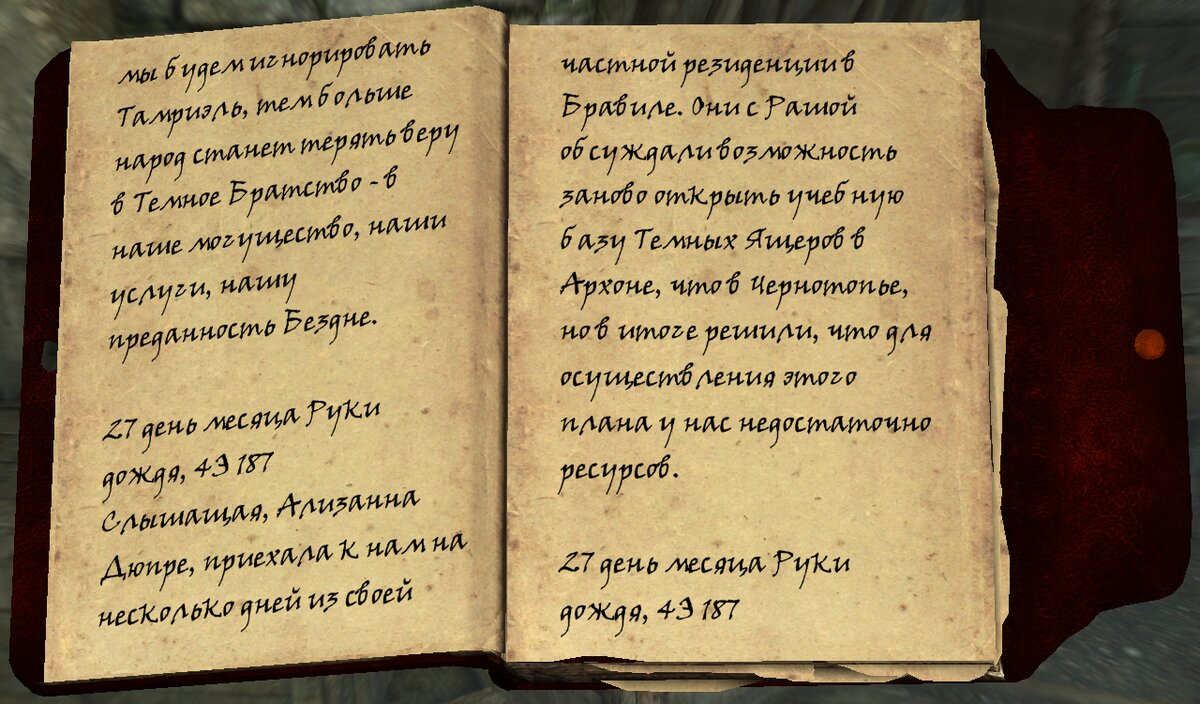 мы будем игнорировать
Тамриэль, тем больше
народ станет терять веру
в Темное Братство - в
наше могущество, наши
услуги, нашу
преданность Бездне.
27 день месяца Руки
дождя, 4Э 187
Слышащая, Ализанна
Дюпре, приехала к нам на
несколько дней из своей
частной резиденции в
Бравиле. Они с Рашой
обсуждали возможность
заново открыть учебную
базу Темных Ящеров в
Архоне, что в Чернотопье,
но в итоге решили, что для
осуществления этого
плана у нас недостаточно
ресурсов.
27 день месяца Руки
дождя, 4Э 187